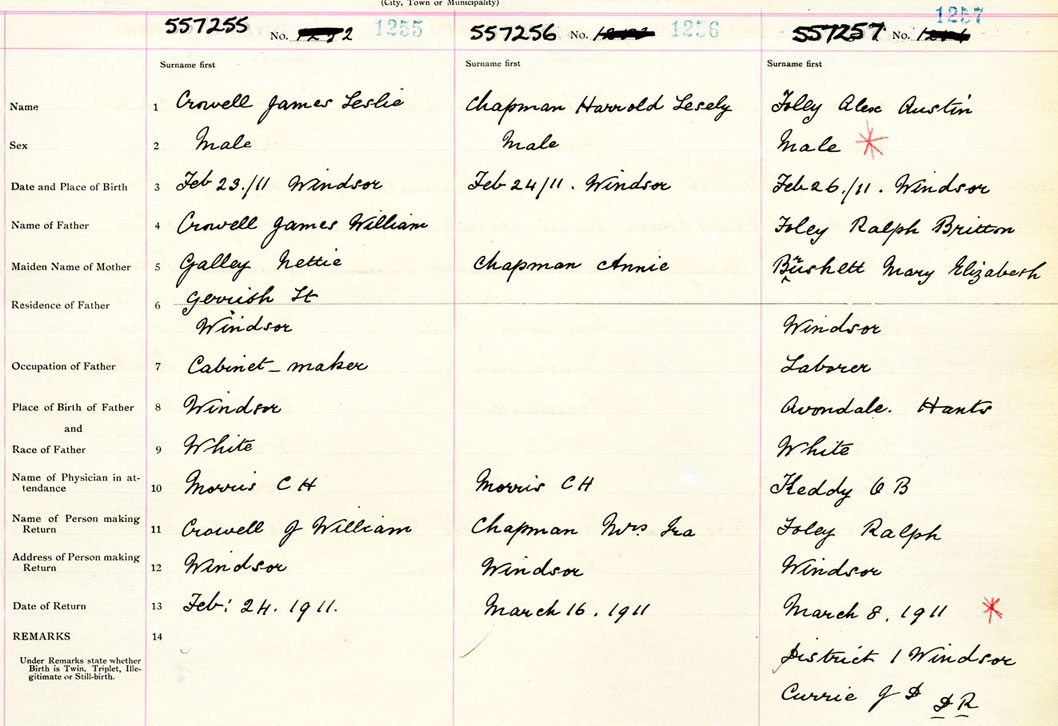 (City, Town or Municipality)
557255 No. 1255 557256 No. 1256 557257 No. 1257
Surname first Surname first Surname first
Name 1 Crowell James Leslie Chapman Harrold Lesely Foley Alex Austin
Sex 2 Male Male Male *
Date and Place of Birth 3 Feb 23./11 Windsor Feb 24/11. Windsor Feb 26./11. Windsor
Name of Father 4 Crowell James William Foley Ralph Britton
Maiden Name of Mother 5 Galley Nettie Chapman Annie Mary Elizabeth
Residence of Father 6 Gerrish St
Windsor Windsor
Occupation of Father 7 Cabinet-maker Laborer
Place of Birth of Father 8 Windsor Avondale. Hants
and
Race of Father 9 White White
Name of Physician in at-
tendance 10 Morris C H Morris C H Keddy O B
Name of Person making
Return 11 Crowell J William Chapman Mrs. Ira Foley Ralph
Address of Person making
Return 12 Windsor Windsor Windsor
Date of Return 13 Feb: 24. 1911. March 16. 1911 March 8. 1911 *
REMARKS 14
Under Remarks state whether
Birth is Twin, Triplet, Ille-
gitimate or Still-birth.
District 1 Windsor
Currie J D D R